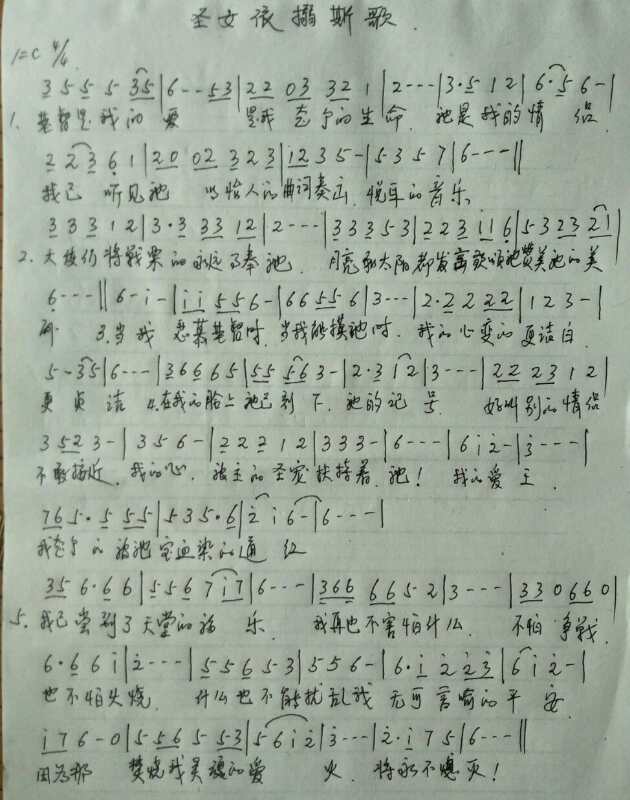 圣女依搦斯歌.
1=C 4/4
3 5 5 5 3 5 | 6 - - 5 3 | 2 2 0 3 3 2 1 | 2 - - - | 3 · 5 1 2 | 6 · 5 6 - |
1. 基督是我的 爱 是我 的生命. 祂是我的情 侣
2 2 3 6 1 | 2 0 0 2 3 2 3 | 1 2 3 5 - | 5 3 5 7 | 6 - - - ||
我已 听见祂 以怡人的曲词奏出 悦耳的音乐
3 3 3 1 2 | 3 · 3 3 3 1 2 | 2 - - - | 3 3 3 5 3 | 2 2 3 i i 6 | 5 3 2 3 2 1 |
2. 天使们将战栗的永远事奉祂. 月亮和太阳都发出歌颂祂赞美祂的美
6 - - - || 6 - i - | i i 5 5 6 - | 6 6 5 5 6 | 3 - - - | 2 · 2 2 2 2 | 1 2 3 - |
丽. 3. 当我 恋慕基督时. 当我触摸祂时. 我的心变的更洁白.
5 - 3 5 | 6 - - - | 3 6 6 6 5 | 5 5 5 6 3 - | 2 · 3 1 2 | 3 - - - | 2 2 2 3 1 2 |
更贞 洁 4. 在我的脸上祂已刻 下. 祂的记 号. 好叫别的情侣
3 5 2 3 - | 3 5 6 - | 2 2 2 1 2 | 3 3 3 - | 6 - - - | 6 i 2 - | 3 - - - |
不敢接近. 我的心. 被主的圣宠扶持着. 祂! 我的爱 主
7 6 5 · 5 5 5 | 5 3 5 · 6 | 2 i 6 - | 6 - - - |
我 的 被祂宝血染的通 红
3 5 6 · 6 6 | 5 5 6 7 i 7 | 6 - - - | 3 6 6 6 6 5 2 | 3 - - - | 3 3 0 6 6 0 |
5. 我已尝到了天堂的福 乐. 我再也不害怕什么. 不怕 争战.
6 · 6 6 i | 2 - - - | 5 5 6 5 3 | 5 5 6 - | 6 · i 2 2 3 | 6 i 2 - |
也不怕火烧. 什么也不能扰乱我 无可言喻的平 安.
i 7 6 - 0 | 5 5 6 5 5 3 | 5 6 i 2 | 3 - - - | 2 · i 7 5 | 6 - - - ||
因为那 焚烧我灵魂的爱 火. 将永不熄灭!